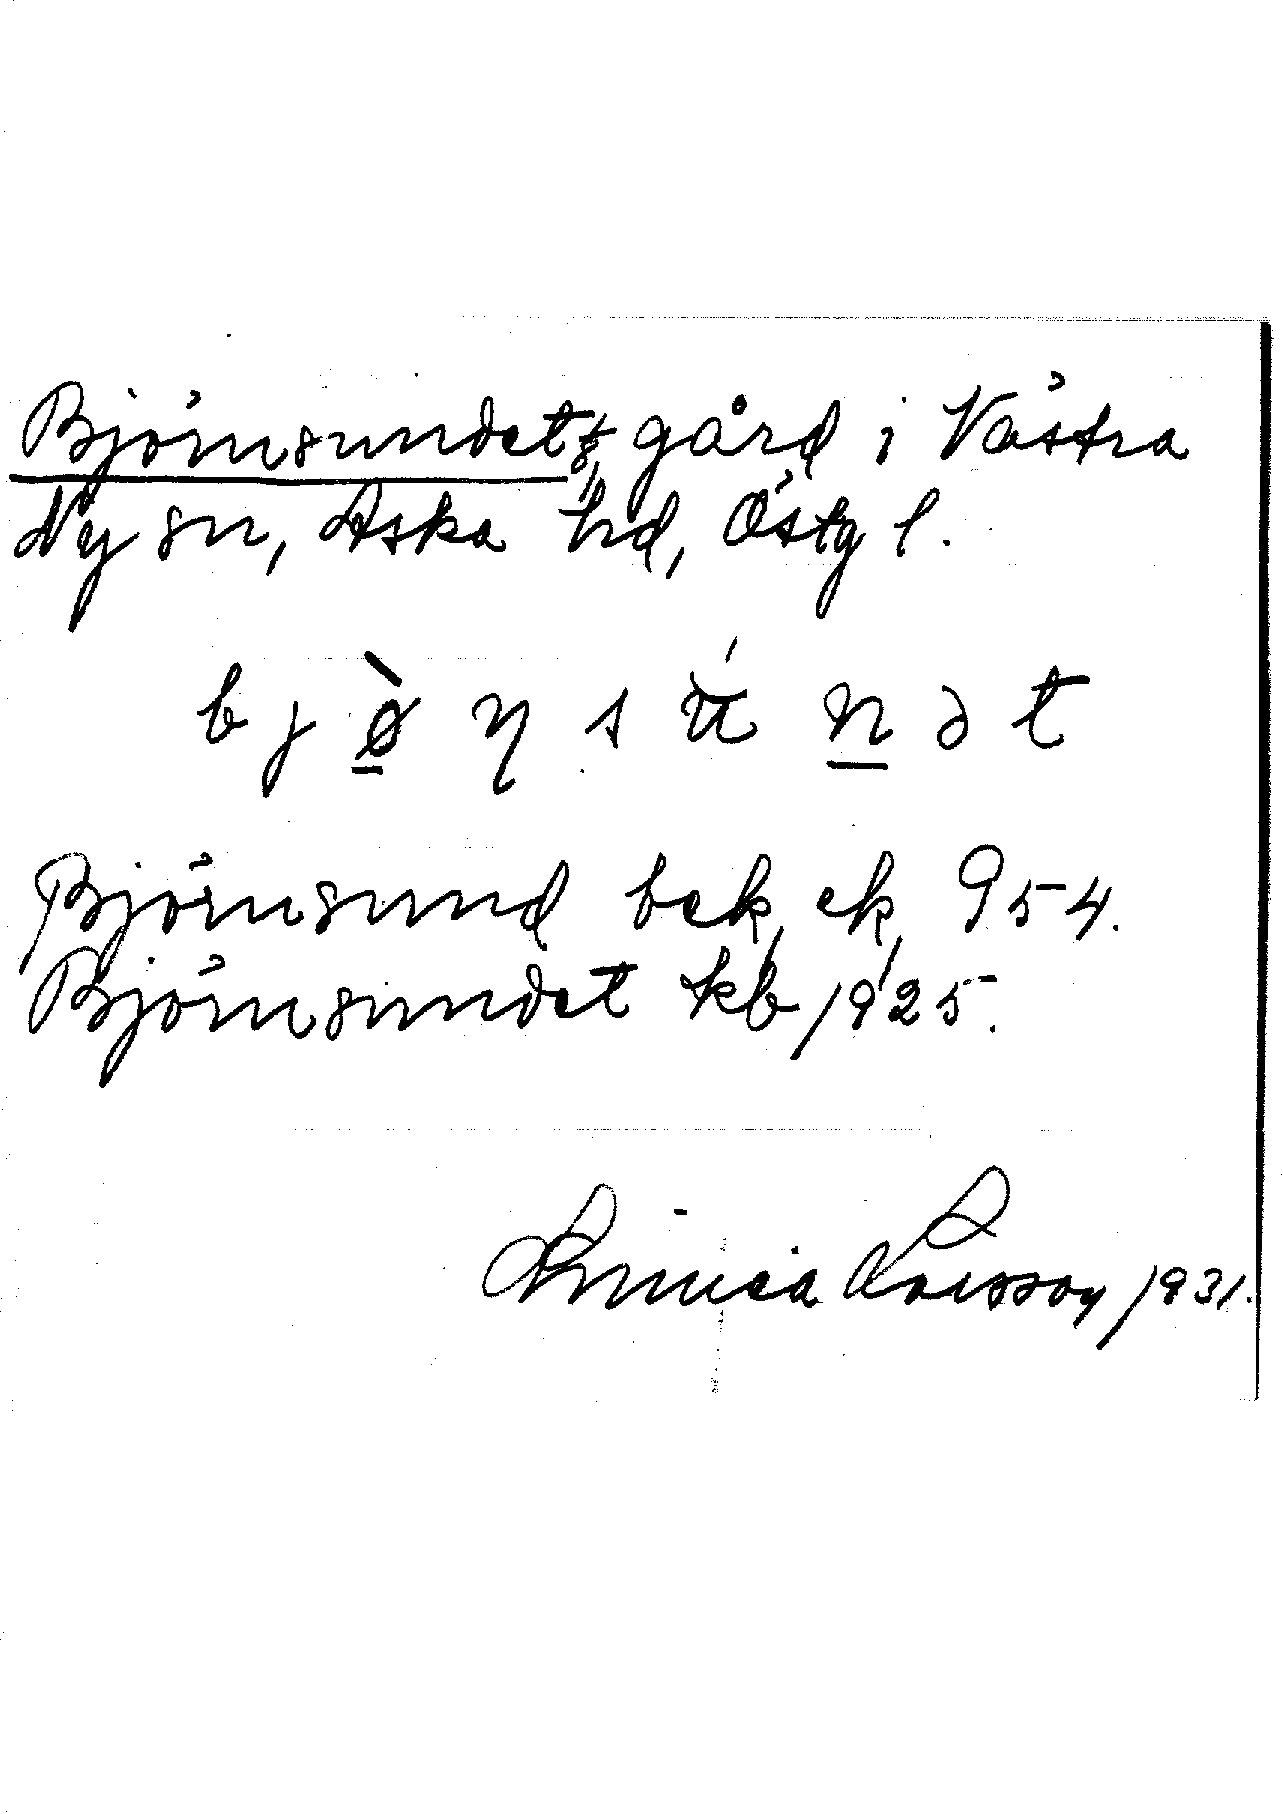 Björnsundet, gård i Västra
Ny sn, Aska hd, Östg l.
bjø̀ṇsúnət
Björnsund bek ek 954.
Björnsundet kb 1925.
Linnea Larsson 1931.